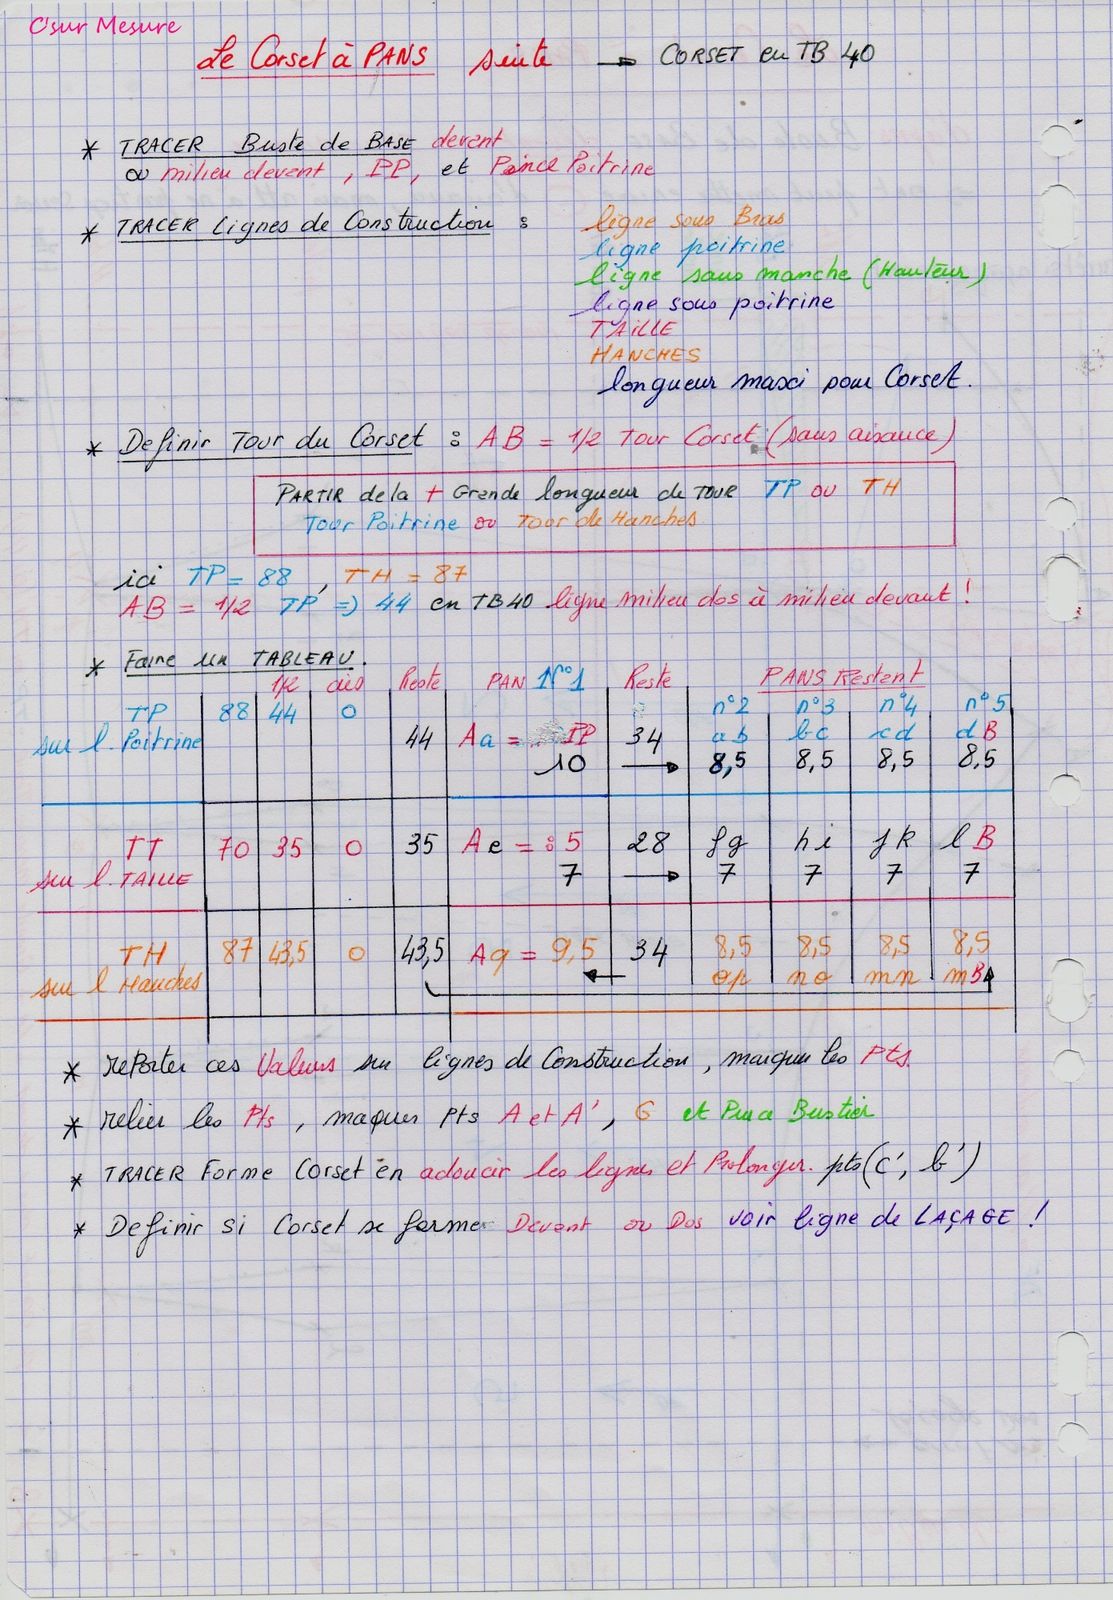 C'sur Mesure
Le Corset à PANS suite → CORSET en TB 40
* TRACER Buste de BASE devant
ou milieu devant, PP, et Pince Poitrine
* TRACER Lignes de Construction : ligne sous Bras
ligne poitrine
ligne sans manche (Hauteur)
ligne sous poitrine
TAILLE
HANCHES
longueur maxi pour Corset.
* Definir Tour du Corset : AB = 1/2 Tour Corset (sans aisance)
PARTIR de la + Grande longueur de TOUR TP ou TH
Tour Poitrine ou Tour de Hanches
ici TP = 88, TH = 87
AB = 1/2 TP => 44 en TB40 ligne milieu dos à milieu devant !
* Faire un TABLEAU.
1/2 Reste PAN N°1 Reste PANS Restent
TP 88 44 0 n°2 n°3 n°4 n°5
sur l. Poitrine 44 Aa = PP 34 ab bc cd dB
10 → 8,5 8,5 8,5 8,5
TT 70 35 0 35 Ae = : 5 28 fg hi jk lB
sur l. TAILLE 7 → 7 7 7 7
TH 87 43,5 0 43,5 Aq = 9,5 34 8,5 8,5 8,5 8,5
sur l Hanches ← op no mn mB
* rePorter ces Valeurs sur lignes de Construction, marquer les Pts.
* relier les Pts, maquer pts A et A', G et Bustier
* TRACER Forme Corset en adoucir les lignes et Prolonger. pts (c', b')
* Definir si Corset se ferme Devant ou Dos voir ligne de LAÇAGE !